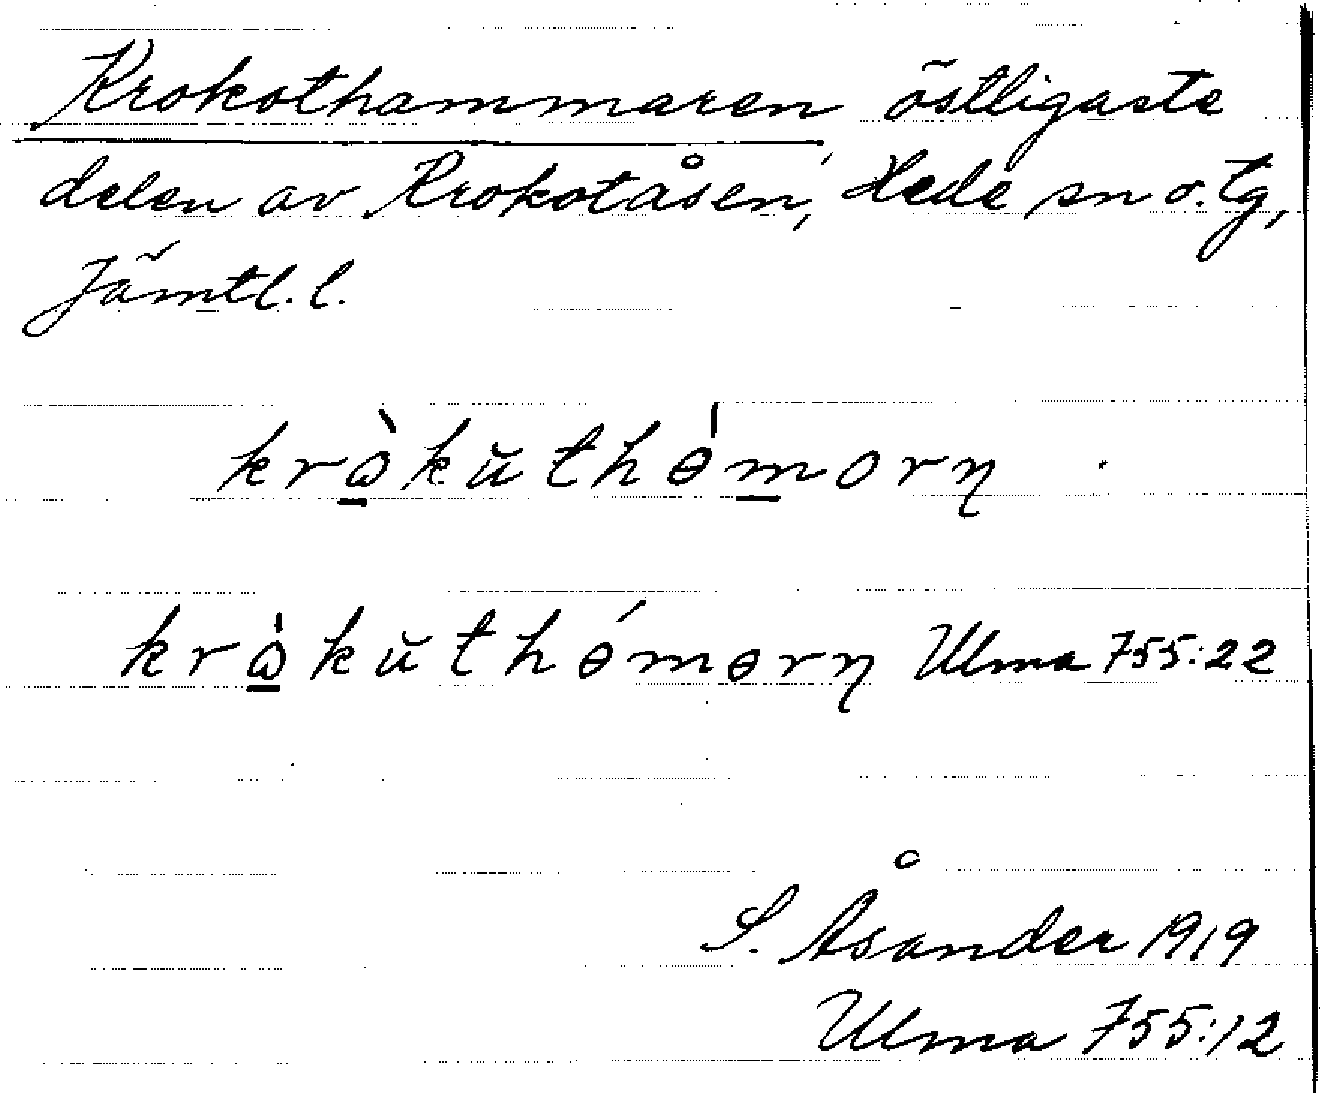 Krokothammaren, östligaste
delen av Krokotåsen, Hede sn o. tg,
Jämtl. l.
kròkŭthɵ́morn
kròkŭthɵ́mɵrn Ulma 755:22
S. Åsander 1919
Ulma 755:12